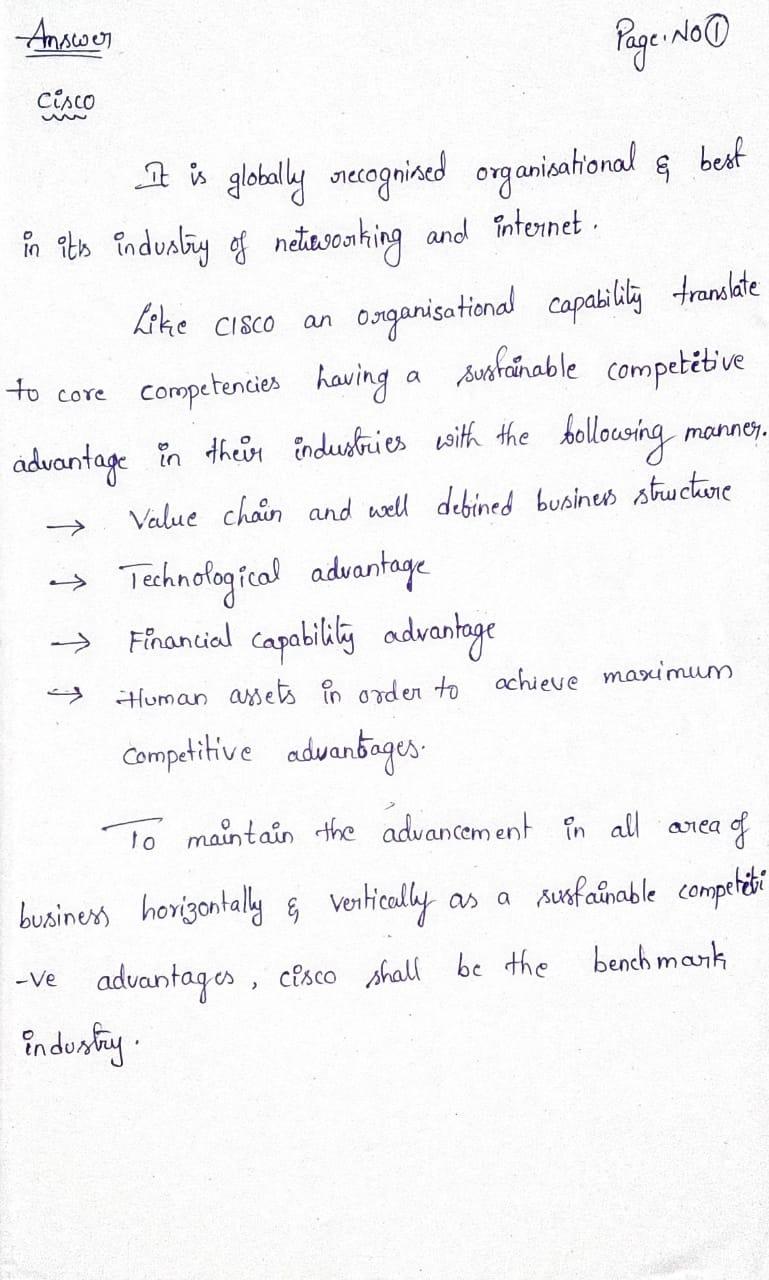 Answer
Page.No①
Cisco
It is globally recognised organisational & best
in its industry of networking and internet.
Like CISCO an organisational capability translate
to core competencies having a sustainable competitive
advantage in their industries with the following manner.
→ Value chain and well defined business structure
→ Technological advantage
→ Financial capability advantage
→ Human assets in order to achieve maximum
competitive advantages.
To maintain the advancement in all area of
business horizontally & vertically as a sustainable competiti
-ve advantages, cisco shall be the benchmark
industry.